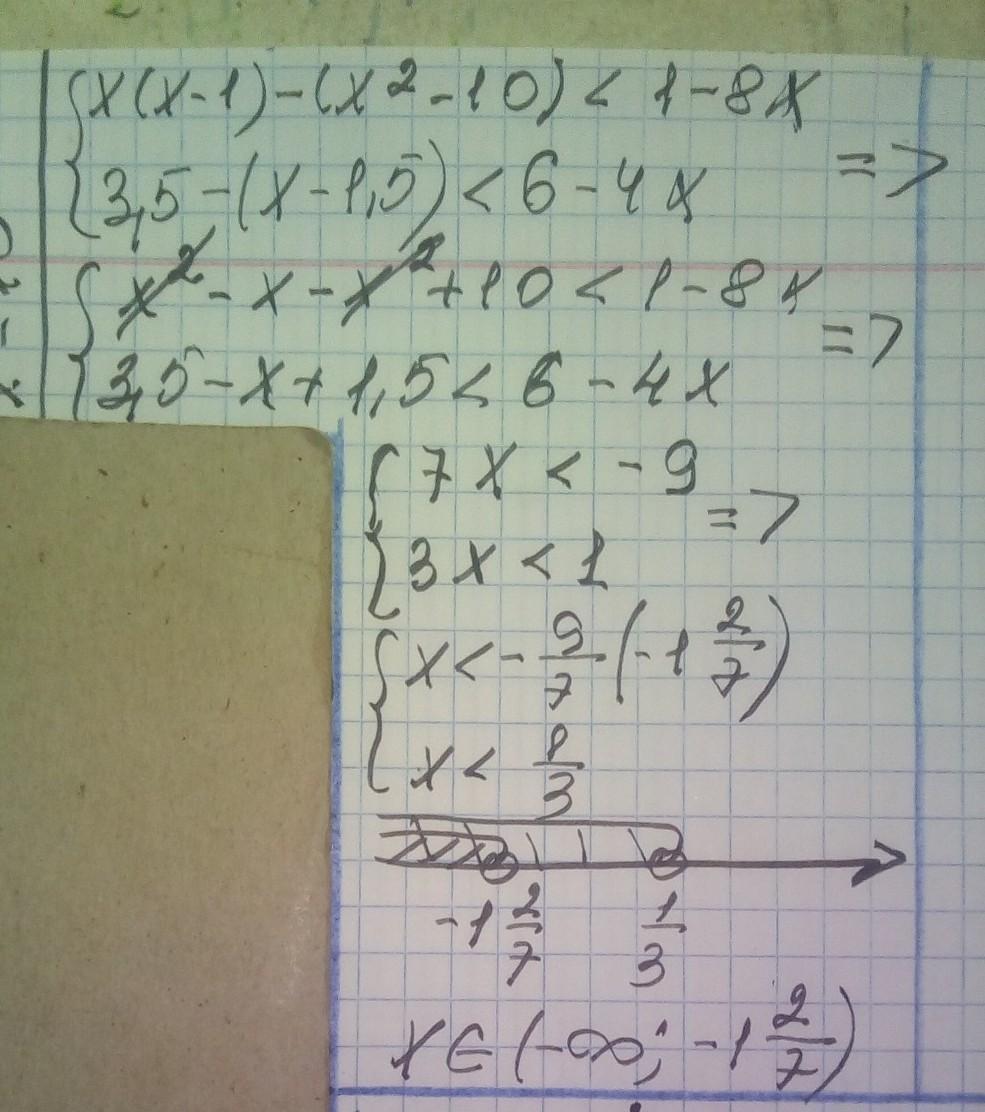 { x(x-1)-(x²-10) < 1-8x
{ 3,5-(x-1,5) < 6-4x =>
{ x²-x-x²+10 < 1-8x
{ 3,5-x+1,5 < 6-4x =>
{ 7x < -9
{ 3x < 1 =>
{ x < -9/7 (-1 2/7)
{ x < 1/3
-1 2/7 1/3
x∈(-∞; -1 2/7)